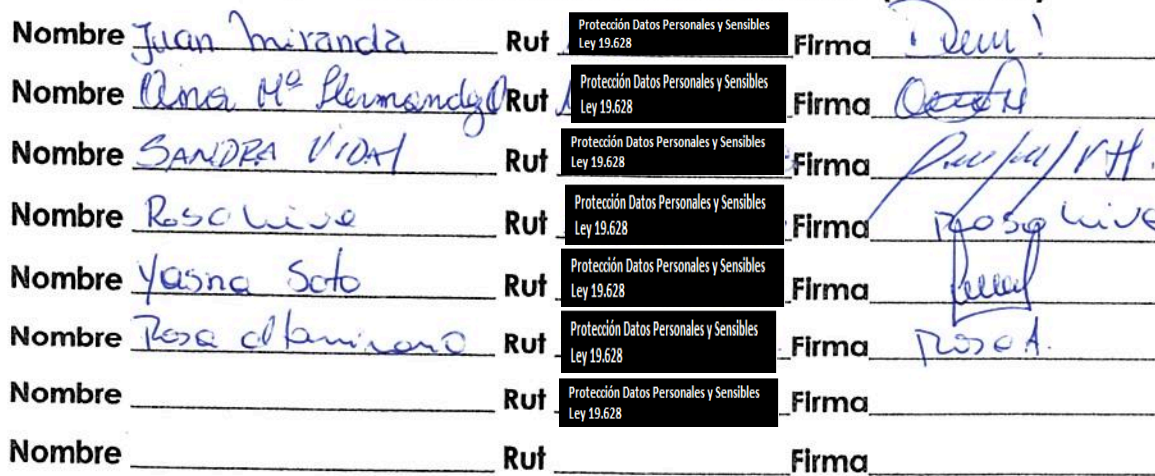 Nombre Juan Miranda Rut Protección Datos Personales y Sensibles Ley 19.628 Firma
Nombre Ana Mª Hernandez Rut Protección Datos Personales y Sensibles Ley 19.628 Firma
Nombre SANDRA VIDAL Rut Protección Datos Personales y Sensibles Ley 19.628 Firma
Nombre Rosa Rut Protección Datos Personales y Sensibles Ley 19.628 Firma Rosa
Nombre Yasna Soto Rut Protección Datos Personales y Sensibles Ley 19.628 Firma
Nombre Rosa altamirano Rut Protección Datos Personales y Sensibles Ley 19.628 Firma Rosa A.
Nombre Rut Protección Datos Personales y Sensibles Ley 19.628 Firma
Nombre Rut Firma